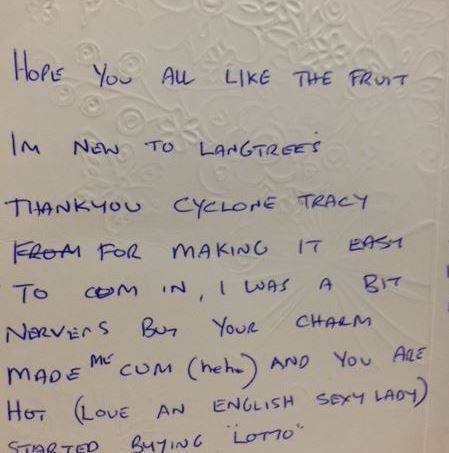 HOPE YOU ALL LIKE THE FRUIT
IM NEW TO LANGTREE'S
THANKYOU CYCLONE TRACY
FROM FOR MAKING IT EASY
TO COM IN, I WAS A BIT
NERVERS BUT YOUR CHARM
MADE ME CUM (hehe) AND YOU ARE
HOT (LOVE AN ENGLISH SEXY LADY)
STARTED BUYING "LOTTO"